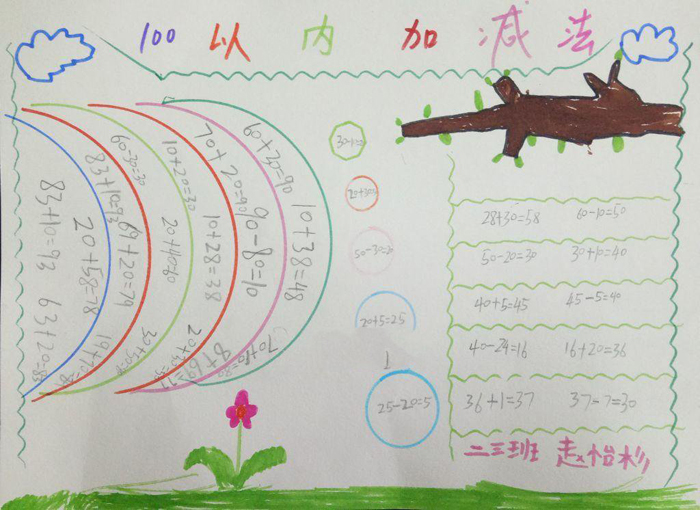 100以内加减法
10+38=48
60+30=90
90-80=10
70+10=80
70+20=90
10+28=38
10+20=30
20+40=60
60-30=30
83+10=93
61+20=79
20+58=78
83+10=93
63+20=83
50-30=20
20+5=25
25-20=5
28+30=58 60-10=50
50-20=30 30+10=40
40+5=45 45-5=40
40-24=16 16+20=36
36+1=37 37-7=30
二三班 赵怡杉